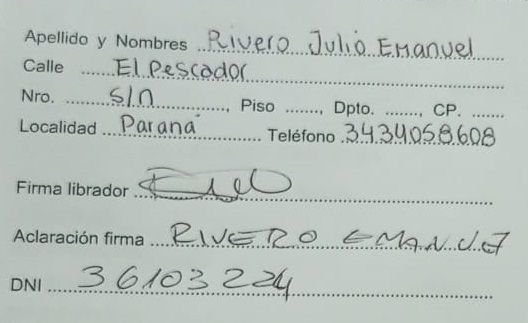 Apellido y Nombres Rivero Julio Emanuel
Calle El Pescador
Nro. S/n, Piso ......, Dpto. ......, CP. ......
Localidad Paraná Teléfono 3434058608
Firma librador
Aclaración firma RIVERO EMANUEL
DNI 36103224